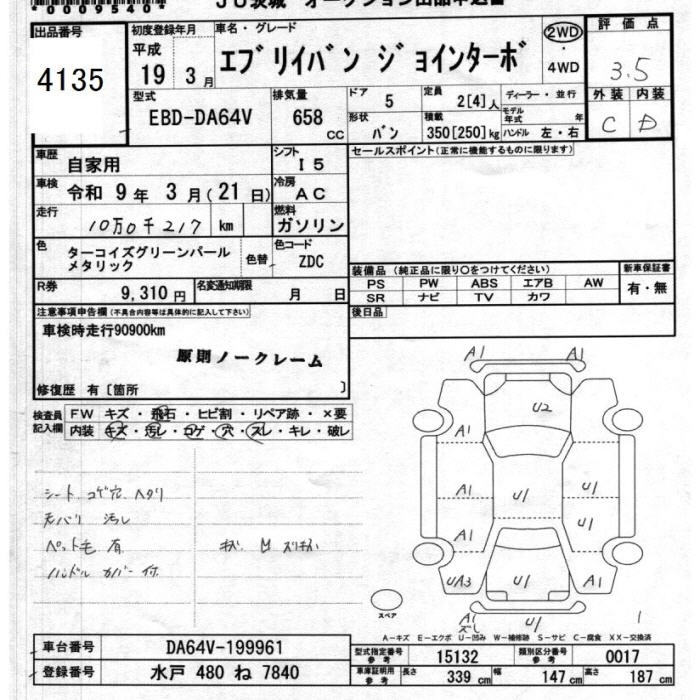 *0009540*
JU茨城 オークション出品申込書
出品番号 4135
初度登録年月 平成 19 3月
車名・グレード エブリイバン ジョインターボ
2WD ・ 4WD
評価点 3.5
外装 内装
C D
型式 EBD-DA64V
排気量 658 cc
ドア 5
定員 2[4]人
ディーラー・並行
モデル年式 年
形状 バン
積載 350[250]kg
ハンドル 左・右
車歴 自家用
シフト I5
セールスポイント(正常に機能するものに限ります)
車検 令和 9年 3月(21日)
冷房 AC
走行 10万0千217 km
燃料 ガソリン
色 ターコイズグリーンパールメタリック
色替
色コード ZDC
装備品 (純正品に限り○をつけてください)
新車保証書
PS PW ABS エアB AW
有・無
SR ナビ TV カワ
R券 9,310円
名変通知期限 月 日
後日品
注意事項申告欄(不具合内容等は具体的に記入して下さい)
車検時走行90900km
原則ノークレーム
修復歴 有〔箇所 〕
検査員記入欄
FW キズ・飛石・ヒビ割・リペア跡・×要
内装 キズ・汚レ・コゲ・穴・スレ・キレ・破レ
シート コゲ穴 ヘタリ
天バリ 汚レ
ペット毛 有
ハンドル カバー付
A1 A1
U2
A1
A1 U1 U1
A1 U1
UA3 U1 A1
A1 U1
スペア
1
A-キズ E-エクボ U-凹み W-補修跡 S-サビ C-腐食 XX-交換済
車台番号 DA64V-199961
型式指定番号 参考 15132
類別区分番号 参考 0017
登録番号 水戸 480 ね 7840
車庫証明用 参考
長さ 339 cm
幅 147 cm
高さ 187 cm